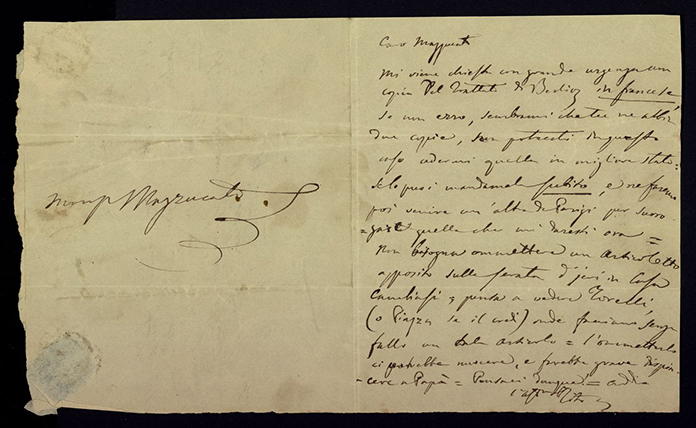 Mazzucato
Caro Mazzucato
Mi viene chiesta con grande urgenza una
copia del Trattato di Berlioz in francese,
se non erro, sembrami che tu ne abbi
due copie, non potresti in questo
caso cedermi quella in miglior stato=
Se lo puoi mandamela subito, e ne faremo
poi venire un'altra da Parigi per surro=
=gare quella che mi daresti ora=
Non bisogna ommettere un articoletto
apposito sulla serata d'jeri in Casa
a vedere Torelli,
(o Piazza se il credi) onde facciano senza
fallo un tale articolo = l'ommetterlo
ci potrebbe nuocere, e farebbe grave dispia=
=cere a Papà = Pensaci dunque = addio
Tito